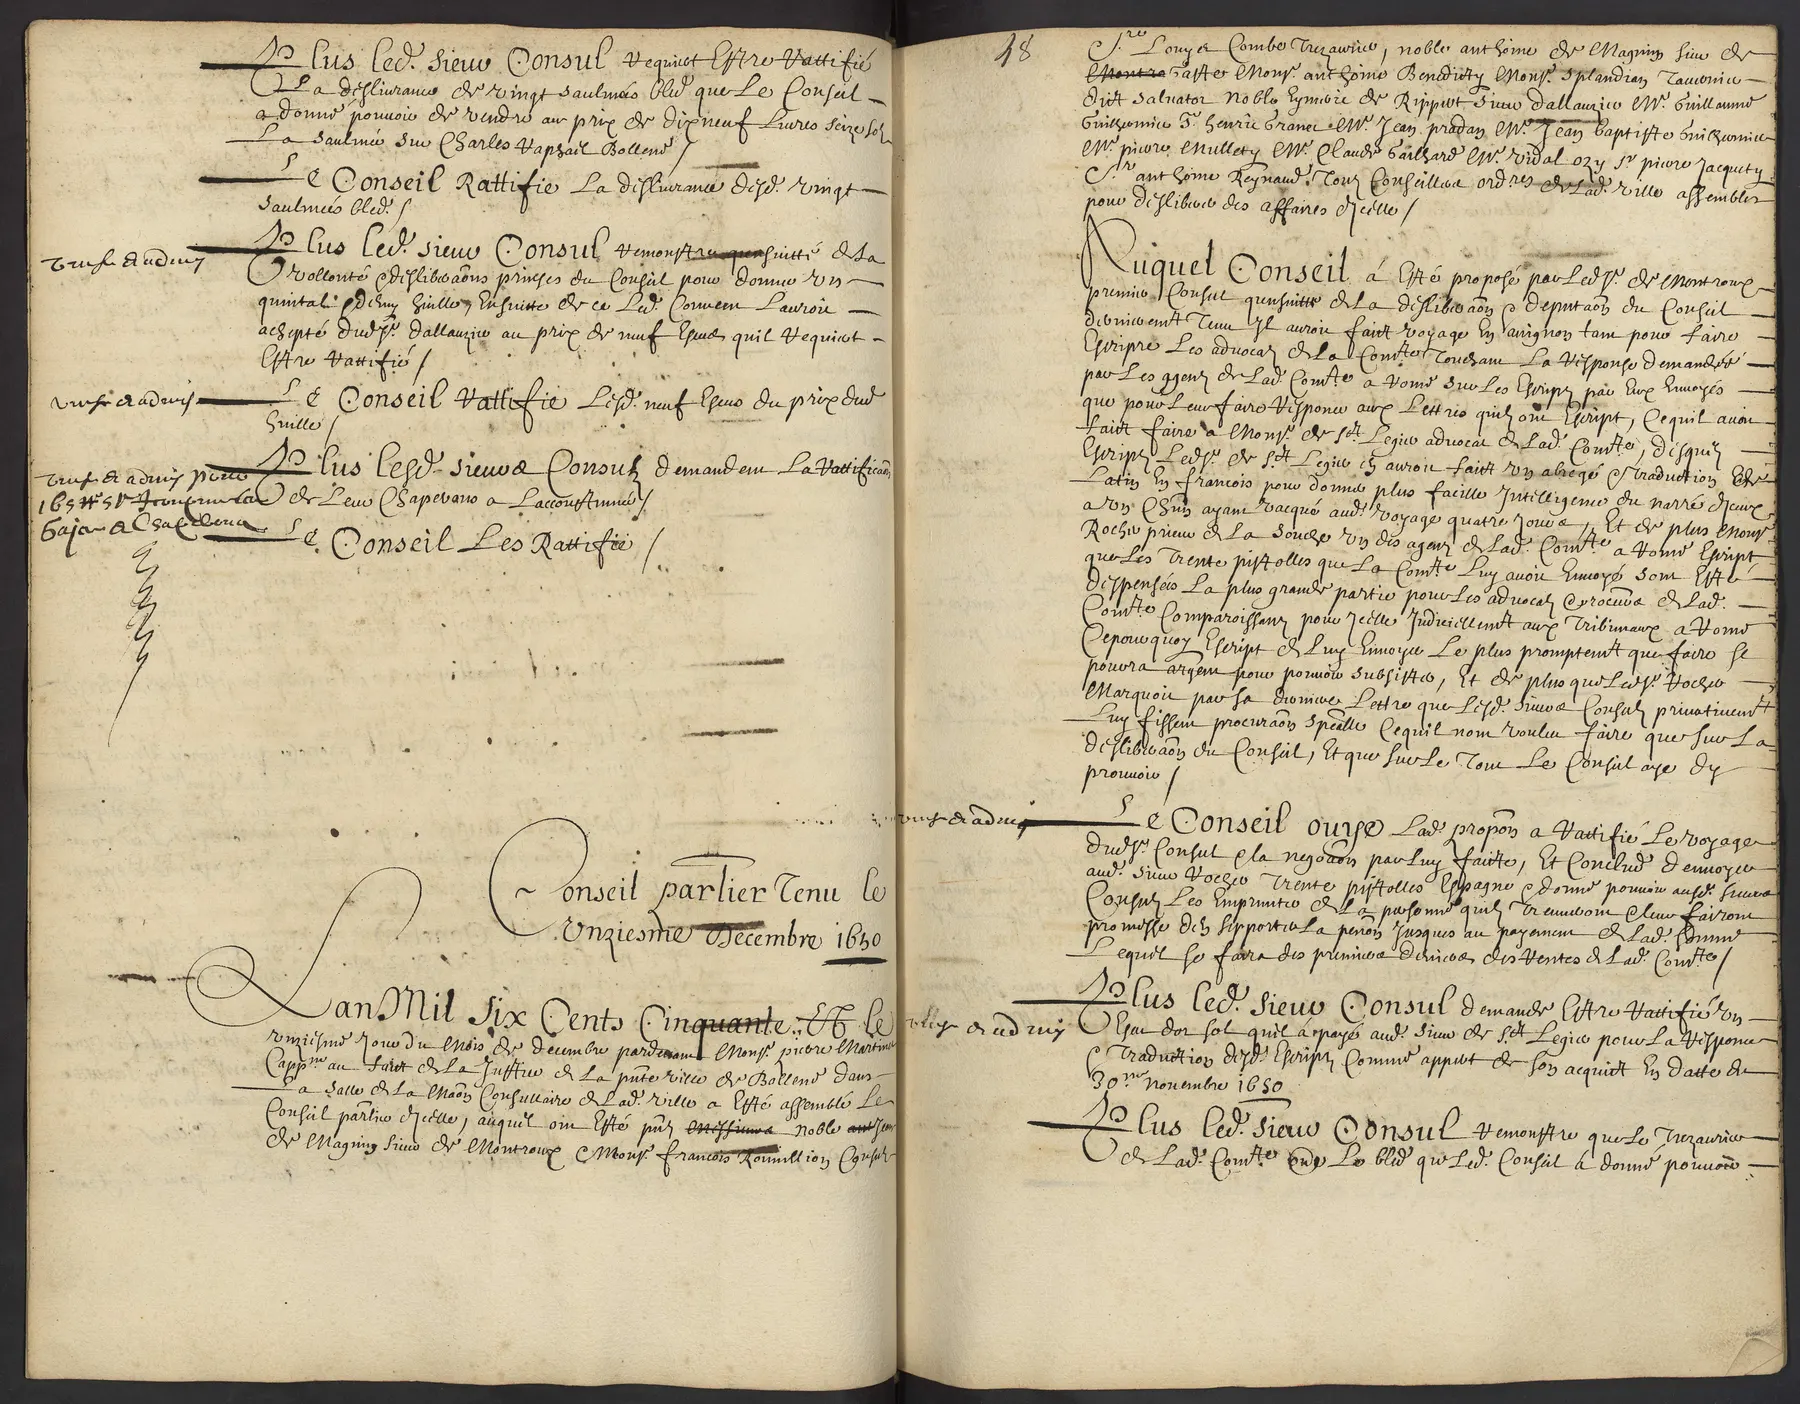 Plus led. sieur Consul requiert Estre Rattifié
La desliurance de vingt saulmés bled que Le Conseil
a donné pouuoir de vendre au prix de dixneuf Liures seize solz
La saulmé sur Charles Raphail Bollene /
Le Conseil Rattifie La desliurance desd. vingt
saulmées bled. /
Plus led. sieur Consul remonstre quensuitté de La
vollonté & deslibraõns prinses du Conseil pour donner un
quintal & demy huille, Ensuitte de ce Led. Conseil Lauroit
achepté dud. sr. dallauzier au prix de neuf Escus quil requiert
Estre Rattifié /
Le Conseil Rattifie Lesd. neuf Escus du prix dud.
huille /
Plus lesd. sieurs Consulz demandent La Rattificaõn
de Leur Chaperons a Laccoustumée /
Le Conseil Les Rattifie /
Conseil parlier Tenu le
Unziesme Decembre 1650
Lan Mil Six Cents Cinquante Et le
unziesme Jour du Mois de decembre pardeuant Mons. pierre Martinel
Capp.ne au faict de La Justice de La pnte ville de Bollene dans
La salle de La Maõn Consullaire de Lad. ville a Esté assemblé Le
Conseil parlier dicelle, auquel ont Esté pñtz noble
de Magnin sieur de Montroux & Mons. francois Rouuillion Consulz
48
S.re Louys Combe Trezaurier, noble anthoine de Magnin sieur de
Gaste Mons. anthoine Benedicty Mons. Splandian Tauernier
dict saluator noble Eymeric de Rippert sieur dallauzier Mr. Guillaume
Guilhermier Sr. henric Granet Mr. Jean pradan Mr. Jean Baptiste Guilhermier
Mr. pierre Mullety Mr. Claude Gailhard Mr. Vidal ozy Sr pierre Jacquety
S.re anthoine Reynaud. Tous Conseillers ord.res de Lad. ville assemblés
pour deslibrer des affaires dicelle /
Auquel Conseil á Esté proposé par Led. Sr. de Montroux
premier Consul quensuitte de La deslibraõn & deputaõn du Conseil
dernierem.t Tenu Il auroit faict voyage En auignon tant pour faire
Escripre Les aduocatz de La Com.té Touchant La response demandée
par Les agentz de Lad. Com.té a Rome sur Les Escriptz par Eux Enuoyés
que pour Leur faire Response aux Lettres quilz ont Escript, Cequil auroit
faict faire a Mons. de s.ct Legier aduocat de Lad. Com.té, desquelz
Escriptz Led. Sr. de s.ct Legier En auroit faict un abregé & Traduction de
Latin En francois pour donner plus facille Intelligence du narré diceux
a un Chun ayant vacqué aud. voyage quatre Jours /. Et de plus Mons.
Rocher prieur de La Souche un des agentz de Lad. Com.té a Rome Escript
que Les Trente pistolles que La Com.té Luy auoit Enuoyé sont Esté
despensées La plus grande partie pour Les aduocatz & procureurs de Lad.
Com.té Comparoissantz pour Icelle Judiciellem.t aux Tribunaux a Rome
Cepourquoy Escript de Luy Enuoyer Le plus promptem.t que faire se
pourra argent pour pouuoir subsister, Et de plus que Led. Sr. Rocher
Marquoit par sa derniere Lettre que Lesd. sieurs Consulz priuatiuem.t
Luy fissent procuraõn Speãlle Cequil nont voulu faire que sur La
deslibraõn du Conseil, Et que sur Le Tout Le Conseil aye dy
prouuoir /
Le Conseil ouye Lad. propõn a Rattifié Le voyage
dud. Sr. Consul & la negoãon par Luy faitte, Et Conclud denuoyer
aud. sieur Rocher Trente pistolles Espagne & donne pouuoir ausd. sieurs
Consulz Les Emprunter de La personne quilz Treuueront & Leur fairont
promesse den supporter La pention Jusques au payement de Lad. somme
Lequel se faira des premiers deniers des Rentes de Lad. Com.té /
Plus led. sieur Consul demande Estre Rattifié un
Escu dor sol quil á payé aud. sieur de s.ct Legier pour La response
& Traduction desd. Escriptz Comme appert de son acquict En datte du
30.me Nouembre 1650
Plus led. sieur Consul remonstre que Le Trezaurier
de Lad. Com.té Le bled que Led. Conseil á donné pouuoir